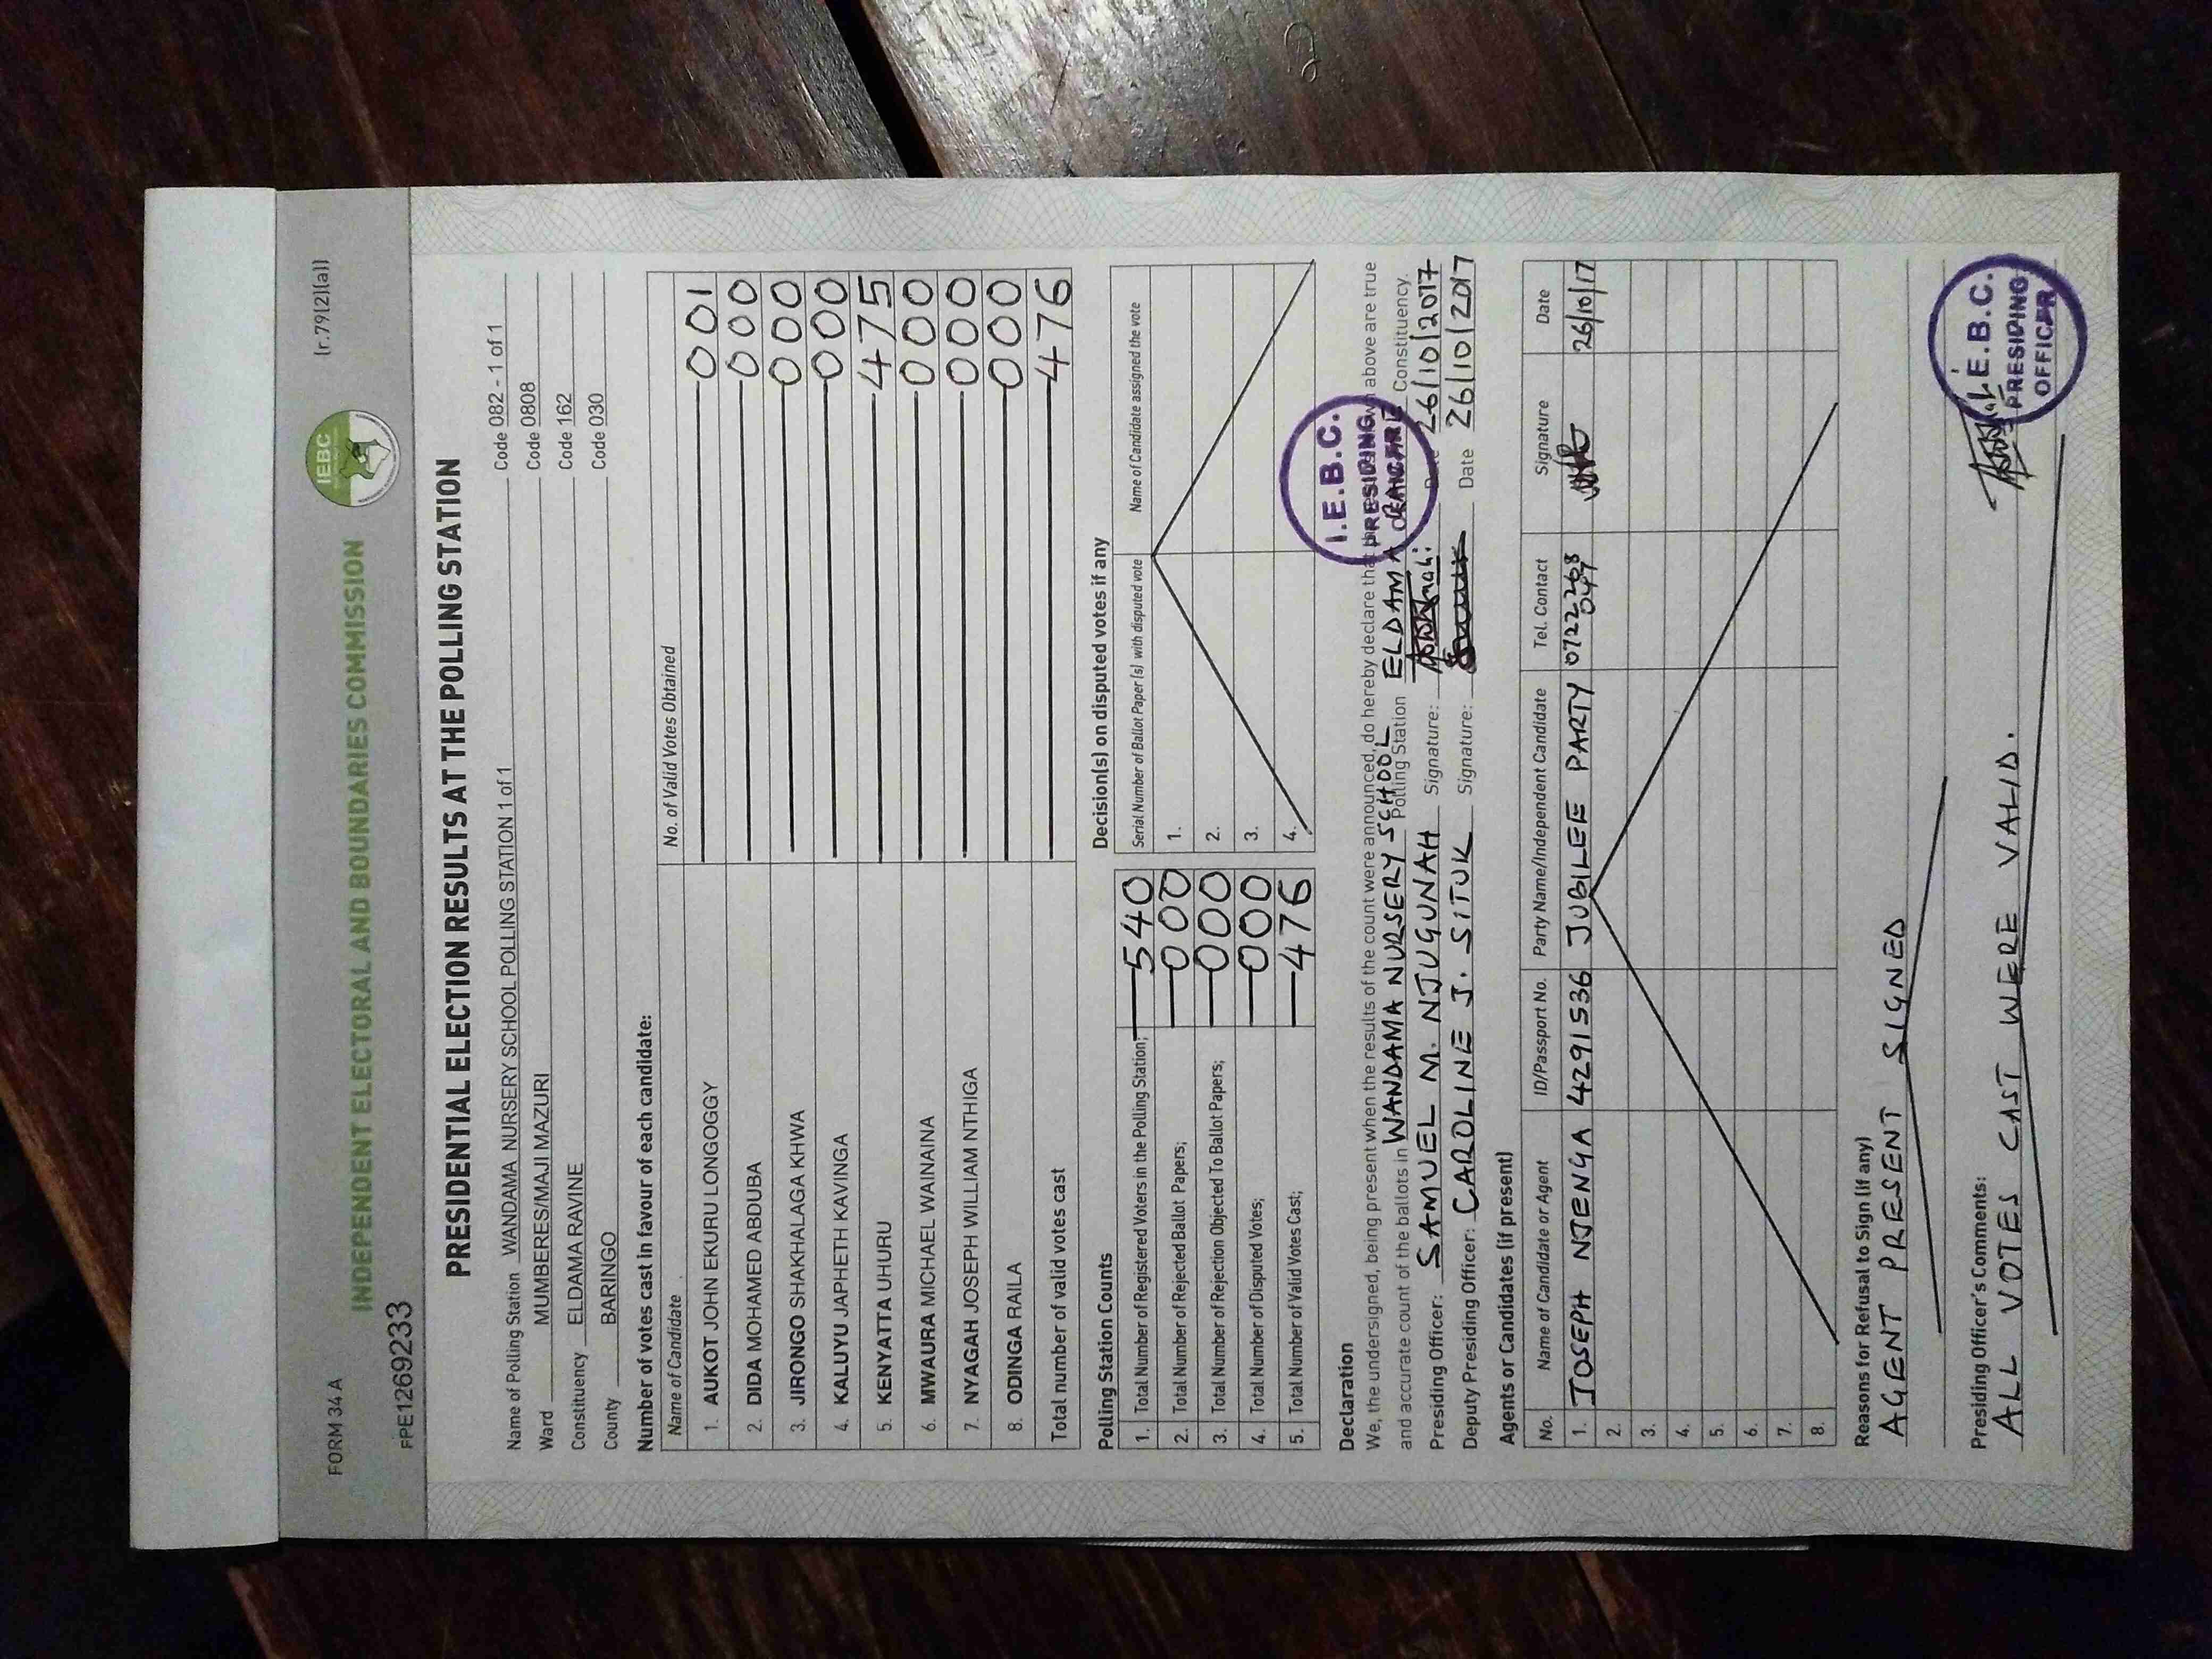 FORM 34 A
(r.79(2)(a))
IEBC
INDEPENDENT ELECTORAL AND BOUNDARIES COMMISSION
FPE1269233
PRESIDENTIAL ELECTION RESULTS AT THE POLLING STATION
Name of Polling Station WANDAMA NURSERY SCHOOL POLLING STATION 1 of 1 Code 082 - 1 of 1
Ward MUMBERES/MAJI MAZURI Code 0808
Constituency ELDAMA RAVINE Code 162
County BARINGO Code 030
Number of votes cast in favour of each candidate:
Name of Candidate No. of Valid Votes Obtained
1. AUKOT JOHN EKURU LONGOGGY 001
2. DIDA MOHAMED ABDUBA 000
3. JIRONGO SHAKHALAGA KHWA 000
4. KALUYU JAPHETH KAVINGA 000
5. KENYATTA UHURU 475
6. MWAURA MICHAEL WAINAINA 000
7. NYAGAH JOSEPH WILLIAM NTHIGA 000
8. ODINGA RAILA 000
Total number of valid votes cast 476
Polling Station Counts
1. Total Number of Registered Voters in the Polling Station; 540
2. Total Number of Rejected Ballot Papers; 000
3. Total Number of Rejection Objected To Ballot Papers; 000
4. Total Number of Disputed Votes; 000
5. Total Number of Valid Votes Cast; 476
Decision(s) on disputed votes if any
Serial Number of Ballot Paper (s) with disputed vote Name of Candidate assigned the vote
1.
2.
3.
4.
Declaration
We, the undersigned, being present when the results of the count were announced, do hereby declare that the above are true
and accurate count of the ballots in WANDAMA NURSERY SCHOOL Polling Station ELDAMA RAVINE Constituency.
Presiding Officer: SAMUEL M. NJUGUNAH Signature: Date 26/10/2017
Deputy Presiding Officer: CAROLINE J. SITUK Signature: Date 26/10/2017
I.E.B.C.
PRESIDING
OFFICER
Agents or Candidates (if present)
No. Name of Candidate or Agent ID/Passport No. Party Name/Independent Candidate Tel. Contact Signature Date
1. JOSEPH NJENGA 4291536 JUBILEE PARTY 26/10/17
2.
3.
4.
5.
6.
7.
8.
Reasons for Refusal to Sign (if any)
AGENT PRESENT SIGNED
Presiding Officer's Comments:
ALL VOTES CAST WERE VALID.
I.E.B.C.
PRESIDING
OFFICER